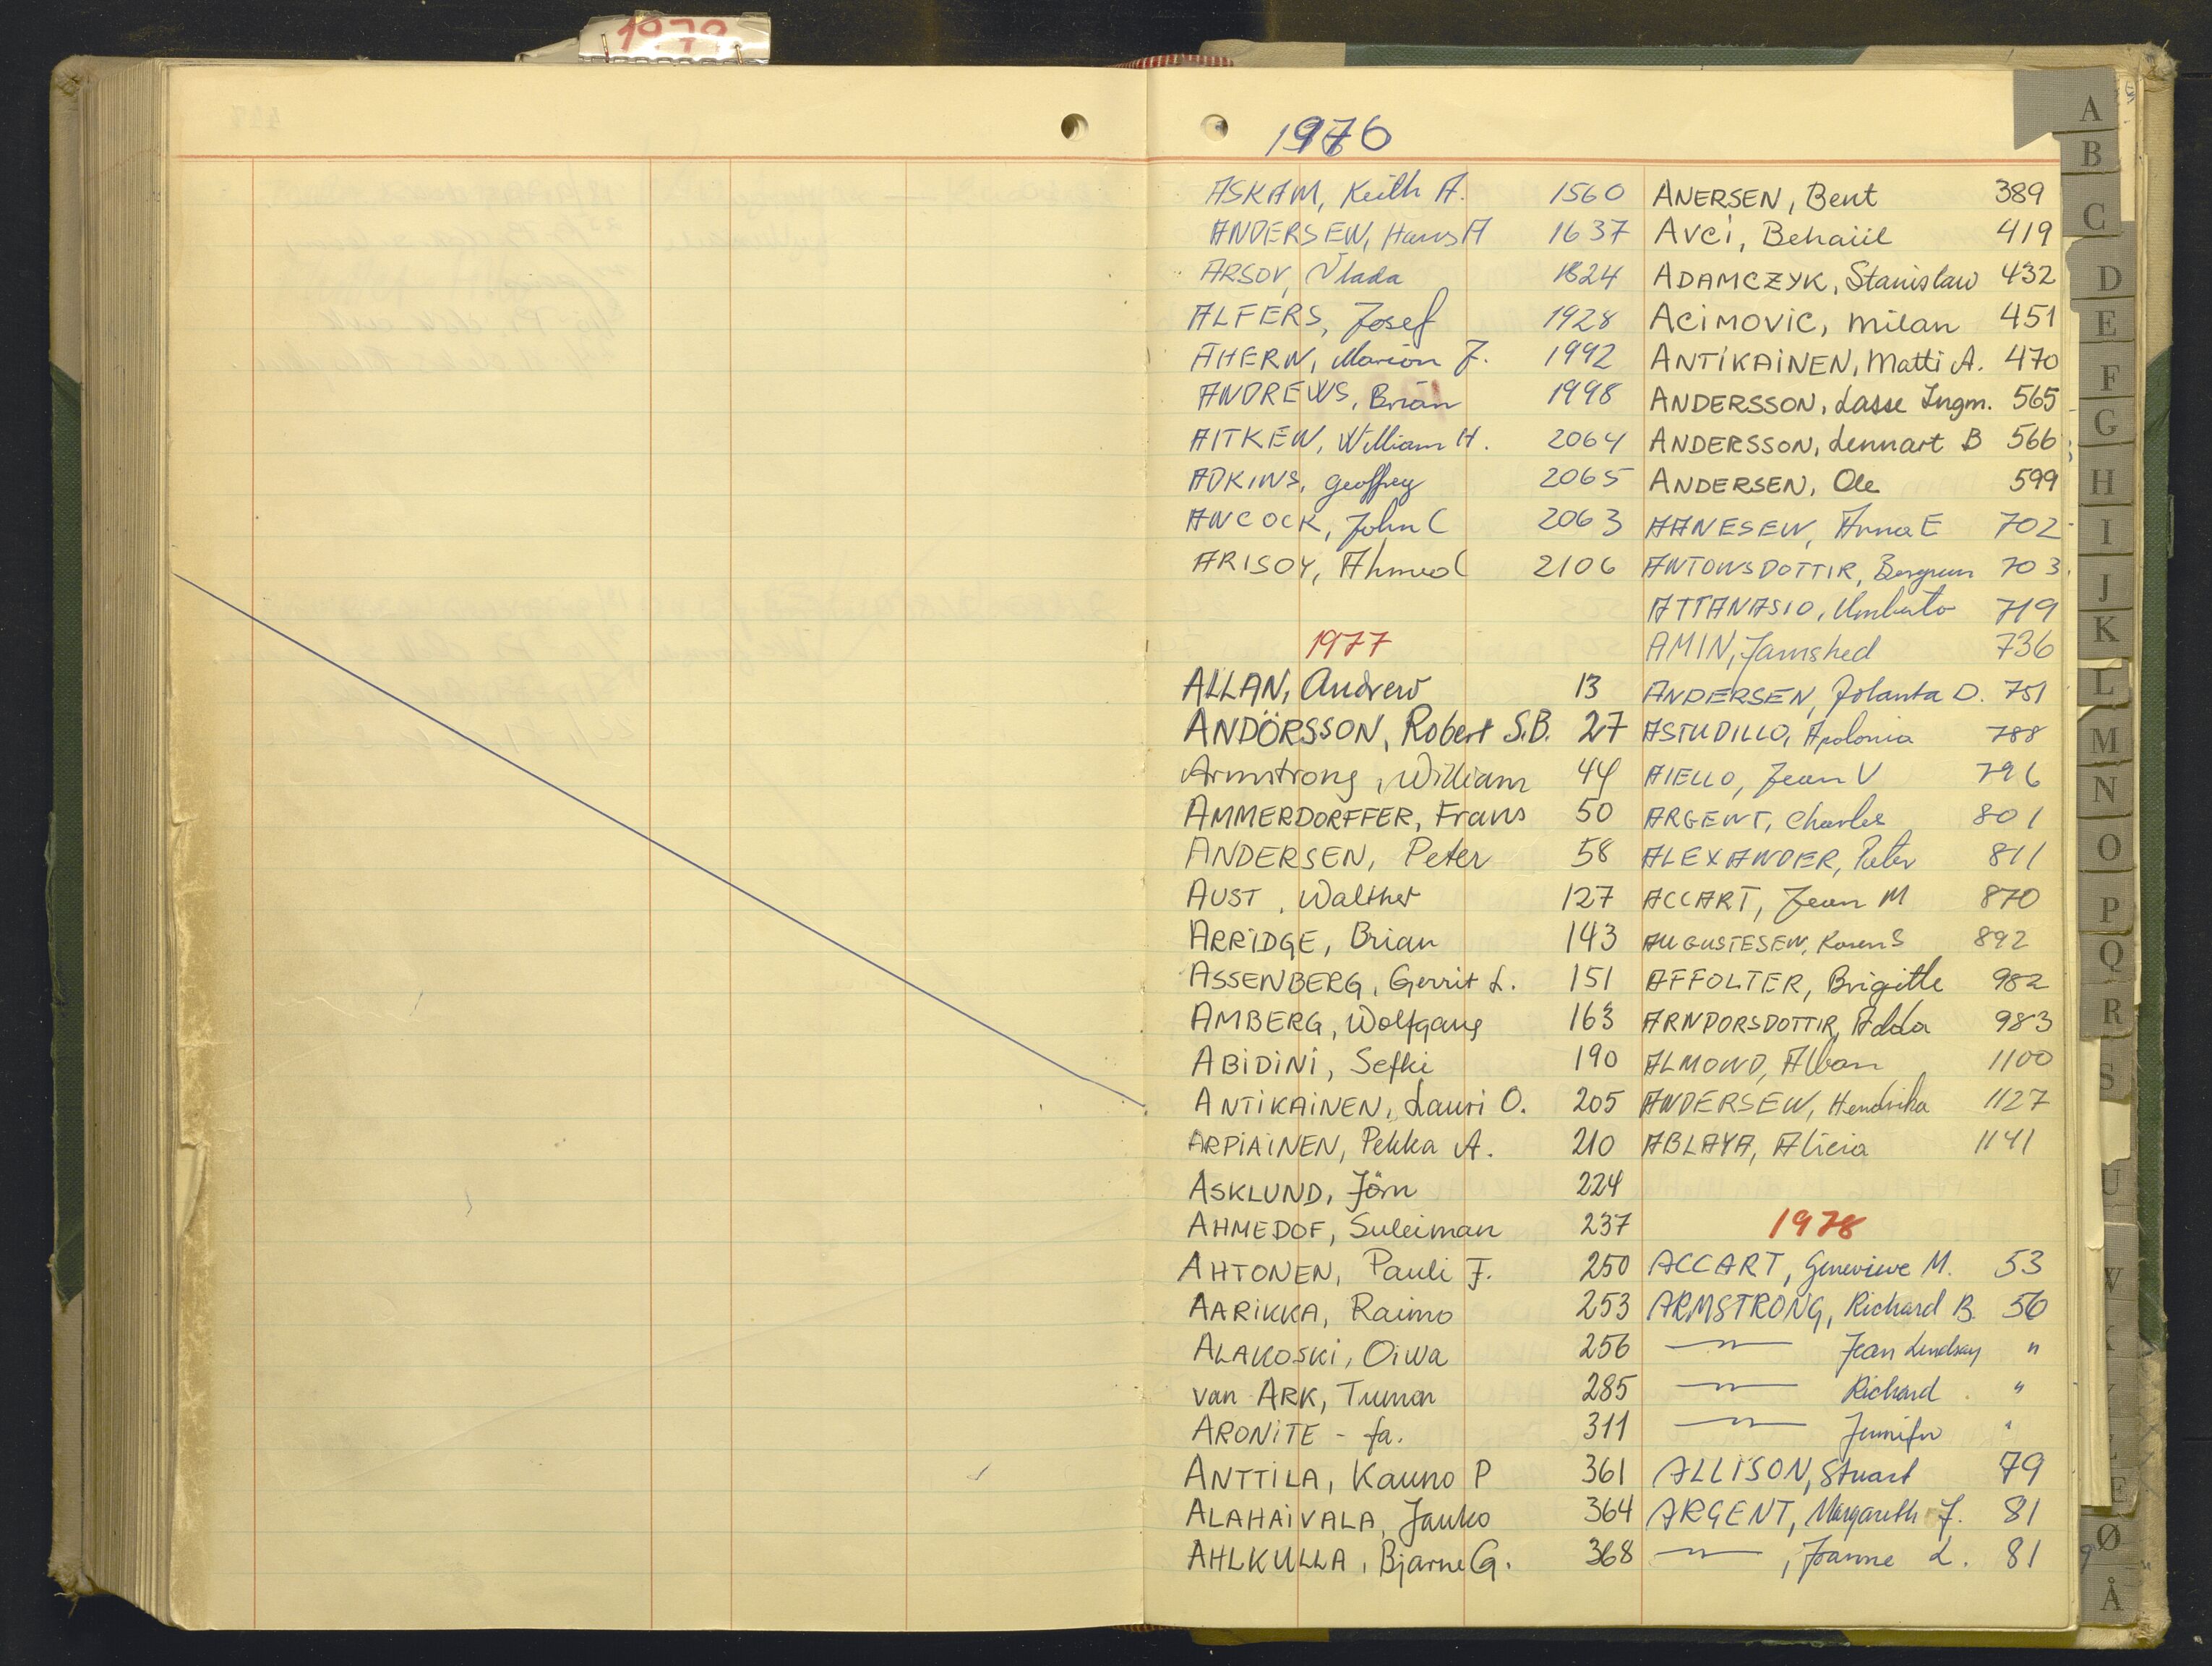 1979
1976
ASKAM, Keith A. 1560
ANDERSEN, Hans A 1637
ARSOV, Vlada 1824
ALFERS, Josef 1928
AHERN, Marion J. 1992
ANDREWS, Brian 1998
AITKEN, William H. 2064
ADKINS, Geoffrey 2065
ANCOCK, John C 2063
ARISOY, Ahmed 2106
1977
ALLAN, Andrew 13
ANDÖRSSON, Robert S.B. 27
Armstrong, William 44
AMMERDORFFER, Frans 50
ANDERSEN, Peter 58
AUST, Walther 127
ARRiDGE, Brian 143
ASSENBERG, Gerrit L. 151
AMBERG, Wolfgang 163
ABiDiNi, Sefki 190
ANTiKAiNEN, Lauri O. 205
ARPiAiNEN, Pekka A. 210
ASKLUND, Jörn 224
AHMEDOF, Suleiman 237
AHTONEN, Pauli J. 250
AARiKKA, Raimo 253
ALAKOSKi, Oiwa 256
van ARK, 285
ARONiTE - fa. 311
ANTTiLA, Kauno P 361
ALAHAiVALA, Jauko 364
AHLKULLA, Bjarne G. 368
ANERSEN, Bent 389
AVCi, 419
ADAMCZYK, Stanislaw 432
ACiMOViC, Milan 451
ANTiKAiNEN, Matti A. 470
ANDERSSON, Lasse Ingm. 565
ANDERSSON, Lennart B 566
ANDERSEN, Ole 599
AANESEN, Anna E 702
ANTONSDOTTIR, Bergrun 703
ATTANASIO, Umberto 719
AMIN, Jamshed 736
ANDERSEN, Jolanta D. 751
ASTUDILLO, Apolonia 788
AIELLO, Jean V 796
ARGENT, Charles 801
ALEXANDER, Peter 811
ACCART, Jean M 870
AUGUSTESEN, Karen S 892
AFFOLTER, Brigitte 982
ARNDORSDOTTIR, Adda 983
ALMOND, Alban 1100
ANDERSEN, Hendrika 1127
ABLAYA, Alicia 1141
1978
ACCART, Genevieve M. 53
ARMSTRONG, Richard B. 56
—"— Jean Lindsay "
—"— Richard "
—"— Jennifer "
ALLISON, Stuart 79
ARGENT, Margareth J. 81
—"—, Joanne L. 81
A
B
C
D
E
F
G
H
I
J
K
L
M
N
O
P
Q
R
S
U
V
Ø
Å